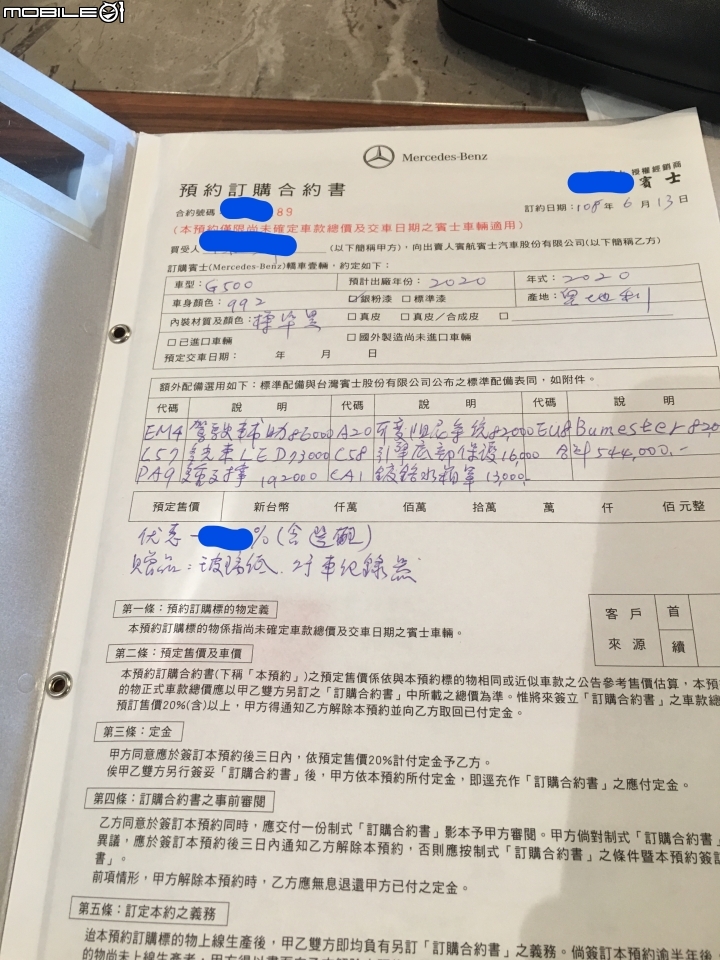 MOBILE01
Mercedes-Benz
授權經銷商
賓士
預約訂購合約書
合約號碼 89
訂約日期：108年6月13日
（本預約僅限尚未確定車款總價及交車日期之賓士車輛適用）
買受人（以下簡稱甲方），向出賣人賓航賓士汽車股份有限公司（以下簡稱乙方）
訂購賓士(Mercedes-Benz)轎車壹輛，約定如下：
車型：G500 預計出廠年份：2020 年式：2020
車身顏色：992 ☑銀粉漆 □標準漆 產地：奧地利
內裝材質及顏色：標準黑 □真皮 □真皮／合成皮 □
□已進口車輛 □國外製造尚未進口車輛
預定交車日期： 年 月 日
額外配備選用如下：標準配備與台灣賓士股份有限公司公布之標準配備表同，如附件。
代碼 說明 代碼 說明 代碼 說明
EM4 駕駛輔助86000 A20 阻尼系統82,000 EU8 Bumester 820
LED 73000 C58 引擎底部保護16,000 合計544,000.-
PA9 192000 CA1 鍍鉻水箱罩13,000.-
預定售價 新台幣 仟萬 佰萬 拾萬 萬 仟 佰元整
优惠 - %(含選配)
贈品：玻璃紙．行車紀錄器
客戶來源 首 續
第一條：預約訂購標的物定義
本預約訂購標的物係指尚未確定車款總價及交車日期之賓士車輛。
第二條：預定售價及車價
本預約訂購合約書(下稱「本預約」)之預定售價係依與本預約標的物相同或近似車款之公告參考售價估算，本預
的物正式車款總價應以甲乙雙方另訂之「訂購合約書」中所載之總價為準。惟將來簽立「訂購合約書」之車款總
預訂售價20%(含)以上，甲方得通知乙方解除本預約並向乙方取回已付定金。
第三條：定金
甲方同意應於簽訂本預約後三日內，依預定售價20%計付定金予乙方。
俟甲乙雙方另行簽妥「訂購合約書」後，甲方依本預約所付定金，即逕充作「訂購合約書」之應付定金。
第四條：訂購合約書之事前審閱
乙方同意於簽訂本預約同時，應交付一份制式「訂購合約書」影本予甲方審閱。甲方倘對制式「訂購合約書
異議，應於簽訂本預約後三日內通知乙方解除本預約，否則應按制式「訂購合約書」之條件暨本預約簽訂
書」。
前項情形，甲方解除本預約時，乙方應無息退還甲方已付之定金。
第五條：訂定本約之義務
迨本預約訂購標的物上線生產後，甲乙雙方即均負有另訂「訂購合約書」之義務。倘簽訂本預約逾半年後